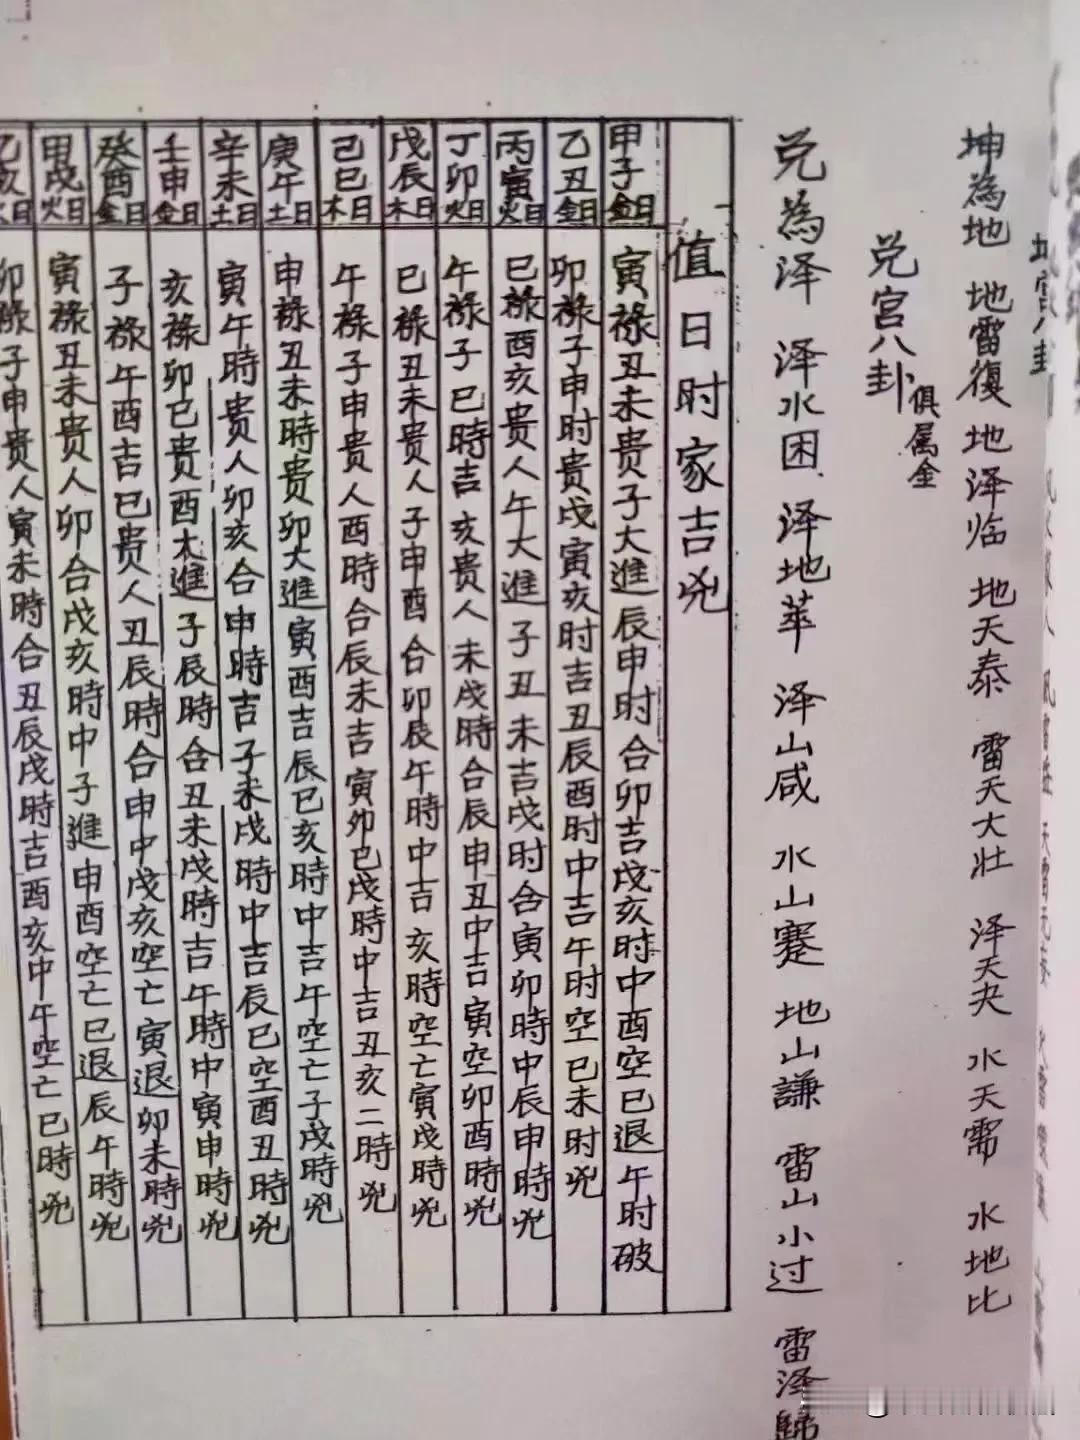 坤為地 地雷復 地泽临 地天泰 雷天大壮 泽天夬 水天需 水地比
兑宫八卦 俱属金
兑為泽 泽水困 泽地萃 泽山咸 水山蹇 地山謙 雷山小过 雷泽歸
值日时家吉兇
甲子金日 寅祿丑未贵子大進辰申时合卯吉戌亥时中酉空巳退午时破
乙丑金日 卯祿子申时贵戌寅亥时吉丑辰酉时中吉午时空巳未时兇
丙寅火日 巳祿酉亥贵人午大進子丑未吉戌时合寅卯時中辰申時兇
丁卯火日 午祿子巳時吉亥贵人未戌時合辰申丑中吉寅空卯酉時兇
戊辰木日 巳祿丑未贵人子申酉合卯辰午時中吉亥時空亡寅戌時兇
己巳木日 午祿子申贵人酉時合辰未吉寅卯巳戌時中吉丑亥二時兇
庚午土日 申祿丑未時贵卯大進寅酉吉辰巳亥時中吉午空亡子戌時兇
辛未土日 寅午時贵人卯亥合申時吉子未戌時中吉辰巳空酉丑時兇
壬申金日 亥祿卯巳贵酉大進子辰時合丑未戌時吉午時中寅申時兇
癸酉金日 子祿午酉吉巳贵人丑辰時合申中戌亥空亡寅退卯未時兇
甲戌火日 寅祿丑未贵人卯合戌亥時中子進申酉空亡巳退辰午時兇
卯祿子申贵人寅未時合丑辰戌時吉酉亥中午空亡巳時兇